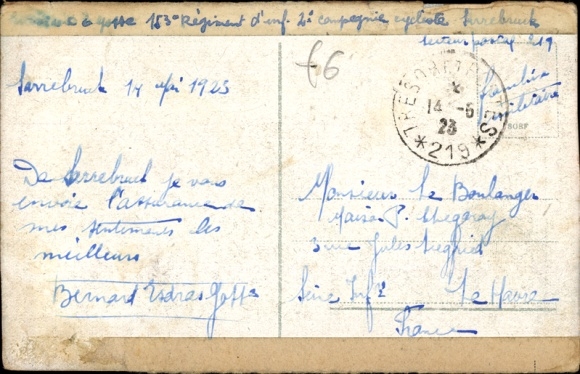 153e Régiment d'inf. 2e compagnie cycliste Sarrebruck
secteur postal 219
£6
Sarrebruck 14 1923
Franchise
militaire
TRESOR ET POSTES
14 -6
23
*219*
De Sarrebruck je vous
envoie l'assurance de
mes sentiments les
meilleurs
Bernard
Monsieur Le Boulanger
Maison P.
3 rue Jules
Seine Infre Le Havre
France